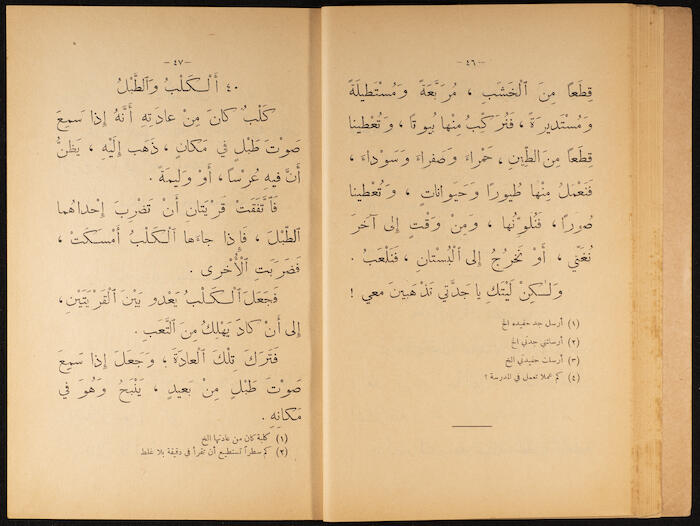 -٤٦-
قِطَعًا مِنَ ٱلْخَشَبِ ، مُرَبَّعَةً وَمُسْتَطِيلَةً
وَمُسْتَدِيرَةً ، فَنُرَكِّبُ مِنْها بُيوتًا ، وَتُعْطِينا
قِطَعًا مِنَ الطِّينِ ، حَمْراءَ وَصَفْراءَ وَسَوْداءَ ،
فَنَعْمَلُ مِنْها طُيورًا وَحَيَواناتٍ ، وَتُعْطِينا
صُوَرًا ، فَنُلَوِّنُها ، وَمِنْ وَقْتٍ إِلى آخَرَ
نُغَنِّي ، أَوْ نَخْرُجُ إِلى الْبُسْتانِ ، فَنَلْعَبُ .
وَلٰكِنْ لَيْتَكِ يا جَدَّتي تَذْهَبينَ مَعي !
(١) أرسل جد حفيده الخ
(٢) أرسلتني جدتي الخ
(٣) أرسلت حفيدتي الخ
(٤) كم عملا تعمل في المدرسة ؟
-٤٧-
٤٠ أَلْكَلْبُ وَٱلطَّبْلُ
كَلْبٌ كانَ مِنْ عادَتِهِ أَنَّهُ إِذا سَمِعَ
صَوْتَ طَبْلٍ في مَكانٍ ، ذَهَب إِلَيْهِ ، يَظُنُّ
أَنَّ فيهِ عُرْسًا ، أَوْ وَليمَةً .
فَٱتَّفَقَتْ قَرْيَتانِ أَنْ تَضْرِبَ إِحْداهُما
ٱلطَّبْلَ ، فَإِذا جاءَها ٱلْكَلْبُ أَمْسَكَتْ ،
فَضَرَبَتِ ٱلْأُخْرى .
فَجَعَلَ ٱلْكَلْبُ يَعْدو بَيْنَ ٱلْقَرْيَتَيْنِ ،
إِلى أَنْ كادَ يَهْلِكُ مِنَ ٱلتَّعَبِ .
فَتَرَكَ تِلْكَ ٱلْعادَةَ ، وَجَعَلَ إِذا سَمِعَ
صَوْتَ طَبْلٍ مِنْ بَعيدٍ ، يَنْبَحُ وَهُوَ في
مَكانِهِ .
(١) كلبة كان من عادتها الخ
(٢) كم سطراً تستطيع أن تقرأ في دقيقة بلا غلط